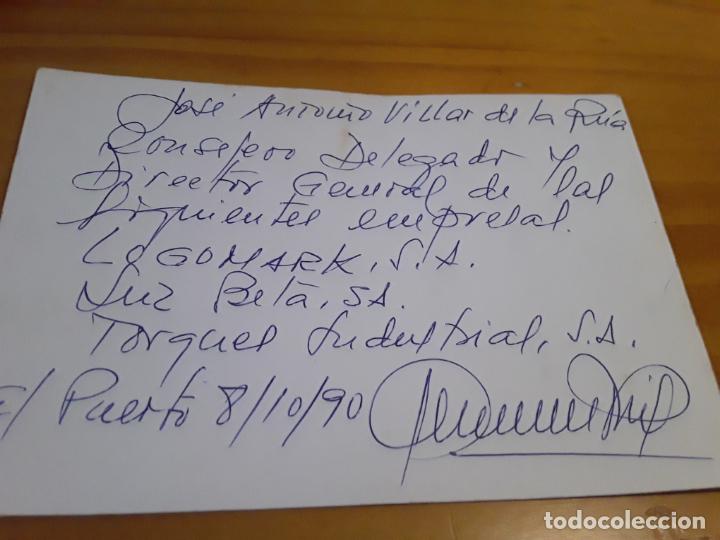 José Antonio Villar de la Rúa
Consejero Delegado y
Director General de las
siguientes empresas.
LOGOMARK, S.A.
Luz Beta, SA.
Torques Industrial, S.A.
El Puerto 8/10/90
todocoleccion
todocoleccion.net